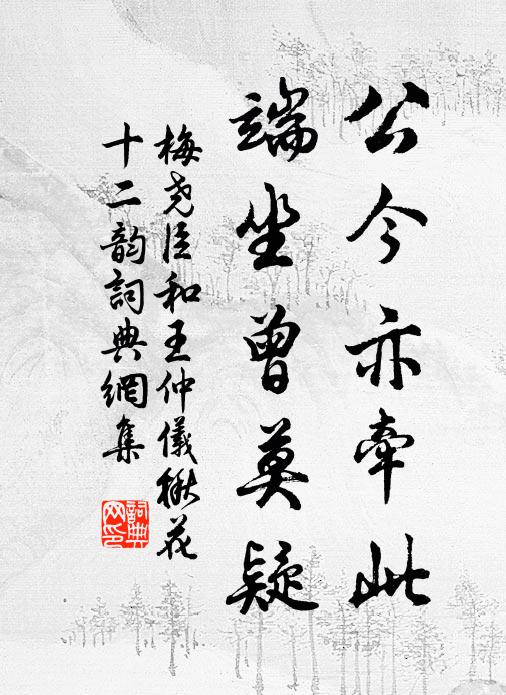 公今亦牵此
端坐曾莫疑
梅尧臣和王仲儀楸花
十二韵詞典網集
詞典
网印